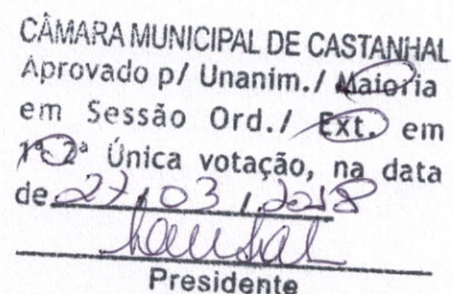 CÂMARA MUNICIPAL DE CASTANHAL
Aprovado p/ Unanim./ Maioria
em Sessão Ord./ Ext. em
1ª 2ª Única votação, na data
de 27, 03, 2018
Presidente